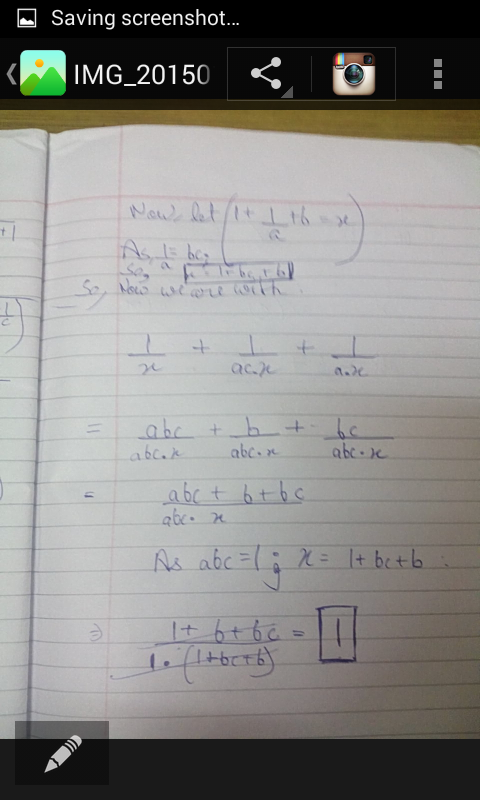 Saving screenshot...
IMG_20150
+1
Now let (1 + 1/a + b = x)
As, 1/a = bc;
So, x = 1+bc+b
So, Now we are with.
1/c
1/x + 1/ac.x + 1/a.x
= abc/abc.x + b/abc.x + bc/abc.x
= abc + b + bc/abc. x
As abc = 1 ; x = 1+bc+b :
⇒ 1+ b+bc/1.(1+bc+b) = 1